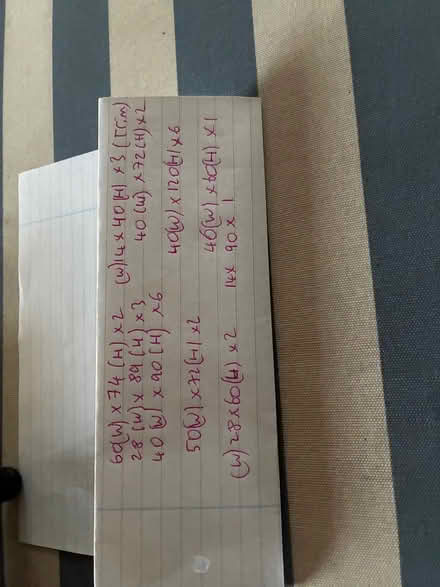 60(W) x 74 (H) x 2
28 (W) x 89 (H) x 3
40 (W) x 90 (H) x 6
50(W) x 72(H) x 2
(W) 28 x 60(H) x 2
(W) 14 x 40 (H) x 3 (
40 (W) x 72 (H) x 2
40(W) x 120(H) x 6
40(W) x 60(H) x 1
14 x 90 x 1